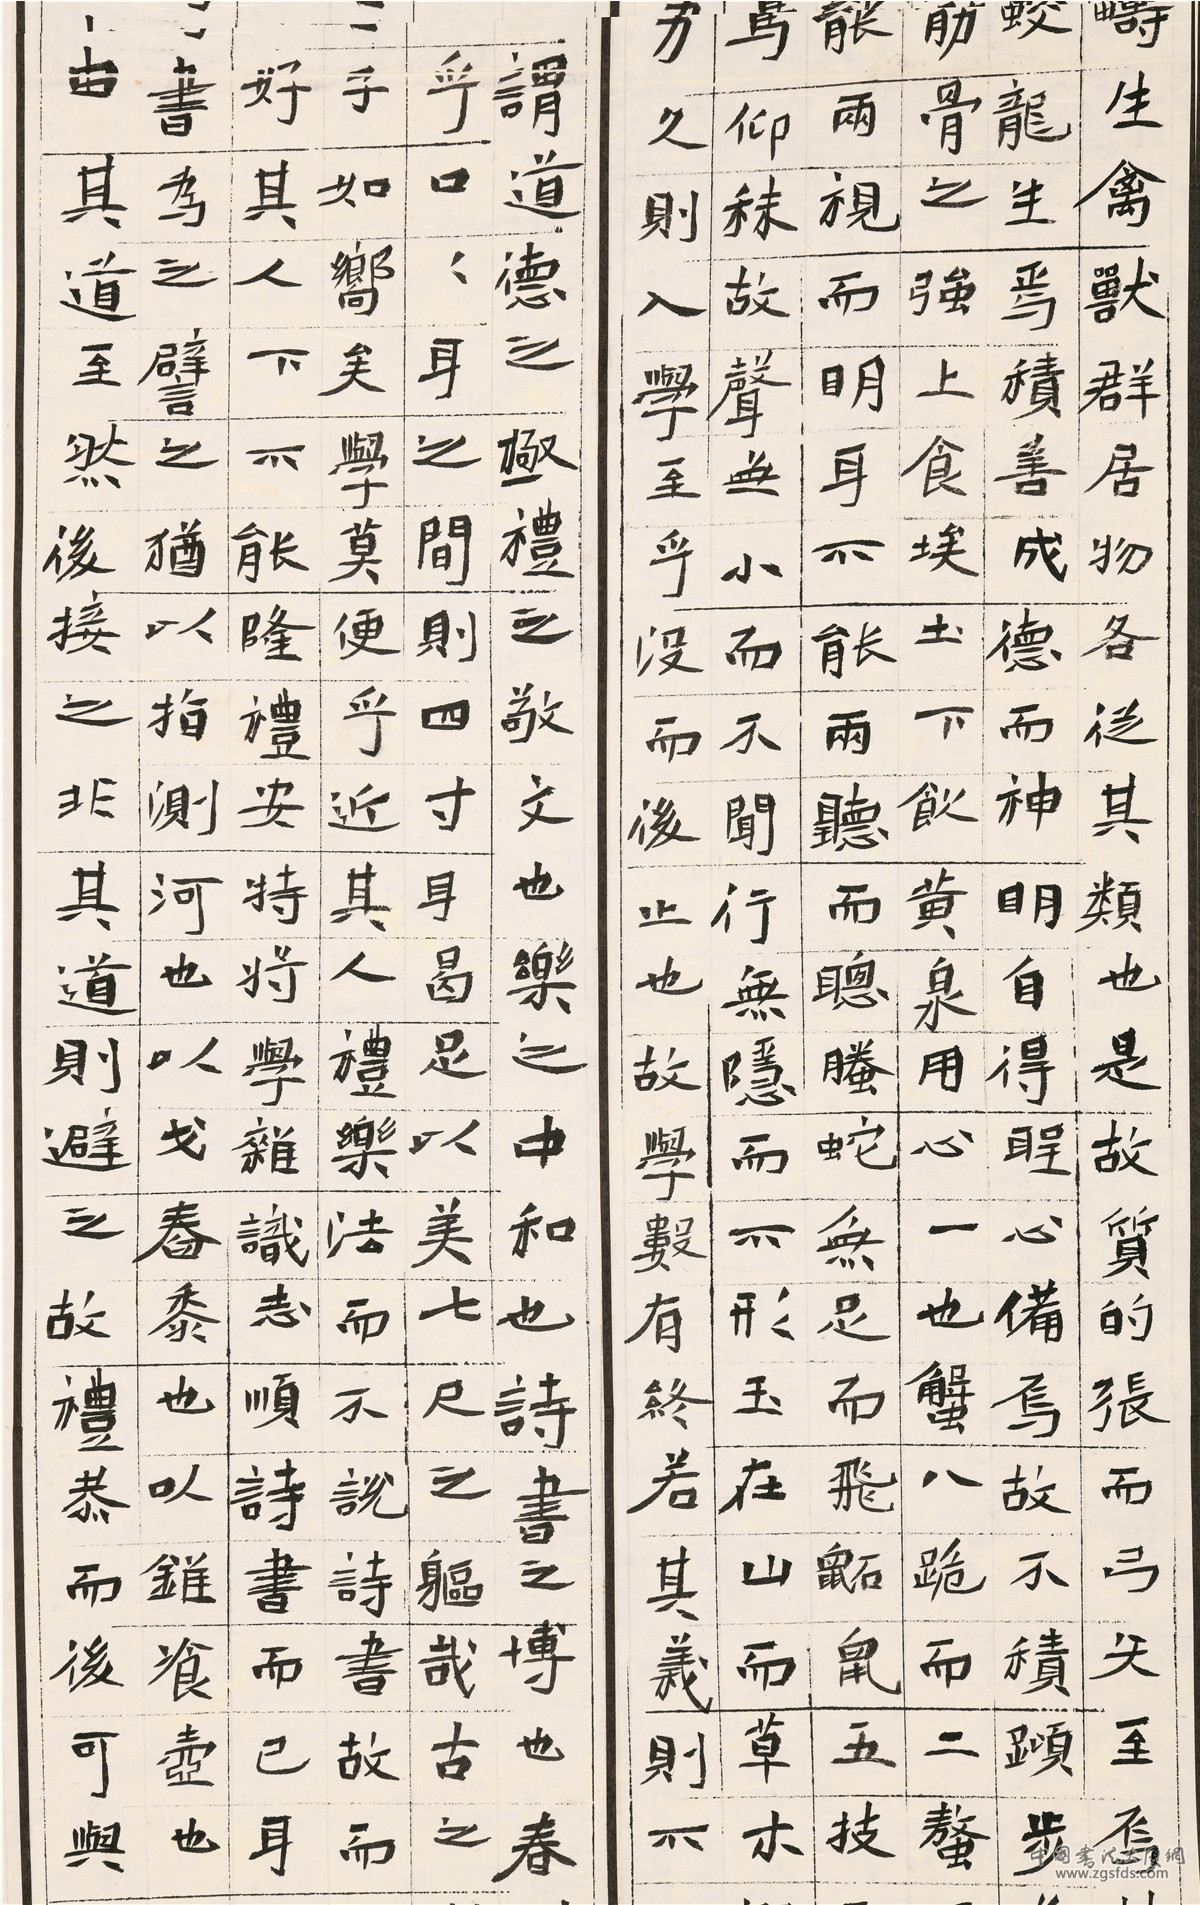 疇生禽獸群居物各從其類也是故質的張而弓矢至焉
蛟龍生焉積善成德而神明自得聖心備焉故不積蹞步
筋骨之強上食埃土下飲黃泉用心一也蟹八跪而二螯
能兩視而明耳不能兩聽而聰螣蛇無足而飛鼫鼠五技
馬仰秣故聲無小而不聞行無隱而不形玉在山而草木
力久則入學至乎沒而後止也故學數有終若其義則不
謂道德之極禮之敬文也樂之中和也詩書之博也春
乎口〻耳之間則四寸耳曷足以美七尺之軀哉古之
二子如嚮矣學莫便乎近其人禮樂法而不說詩書故而
好其人下不能隆禮安特將學雜識志順詩書而已耳
書為之譬之猶以指測河也以戈舂黍也以錐飡壺也
由其道至然後接之非其道則避之故禮恭而後可與
中国书法大厦網
www.zgsfds.com